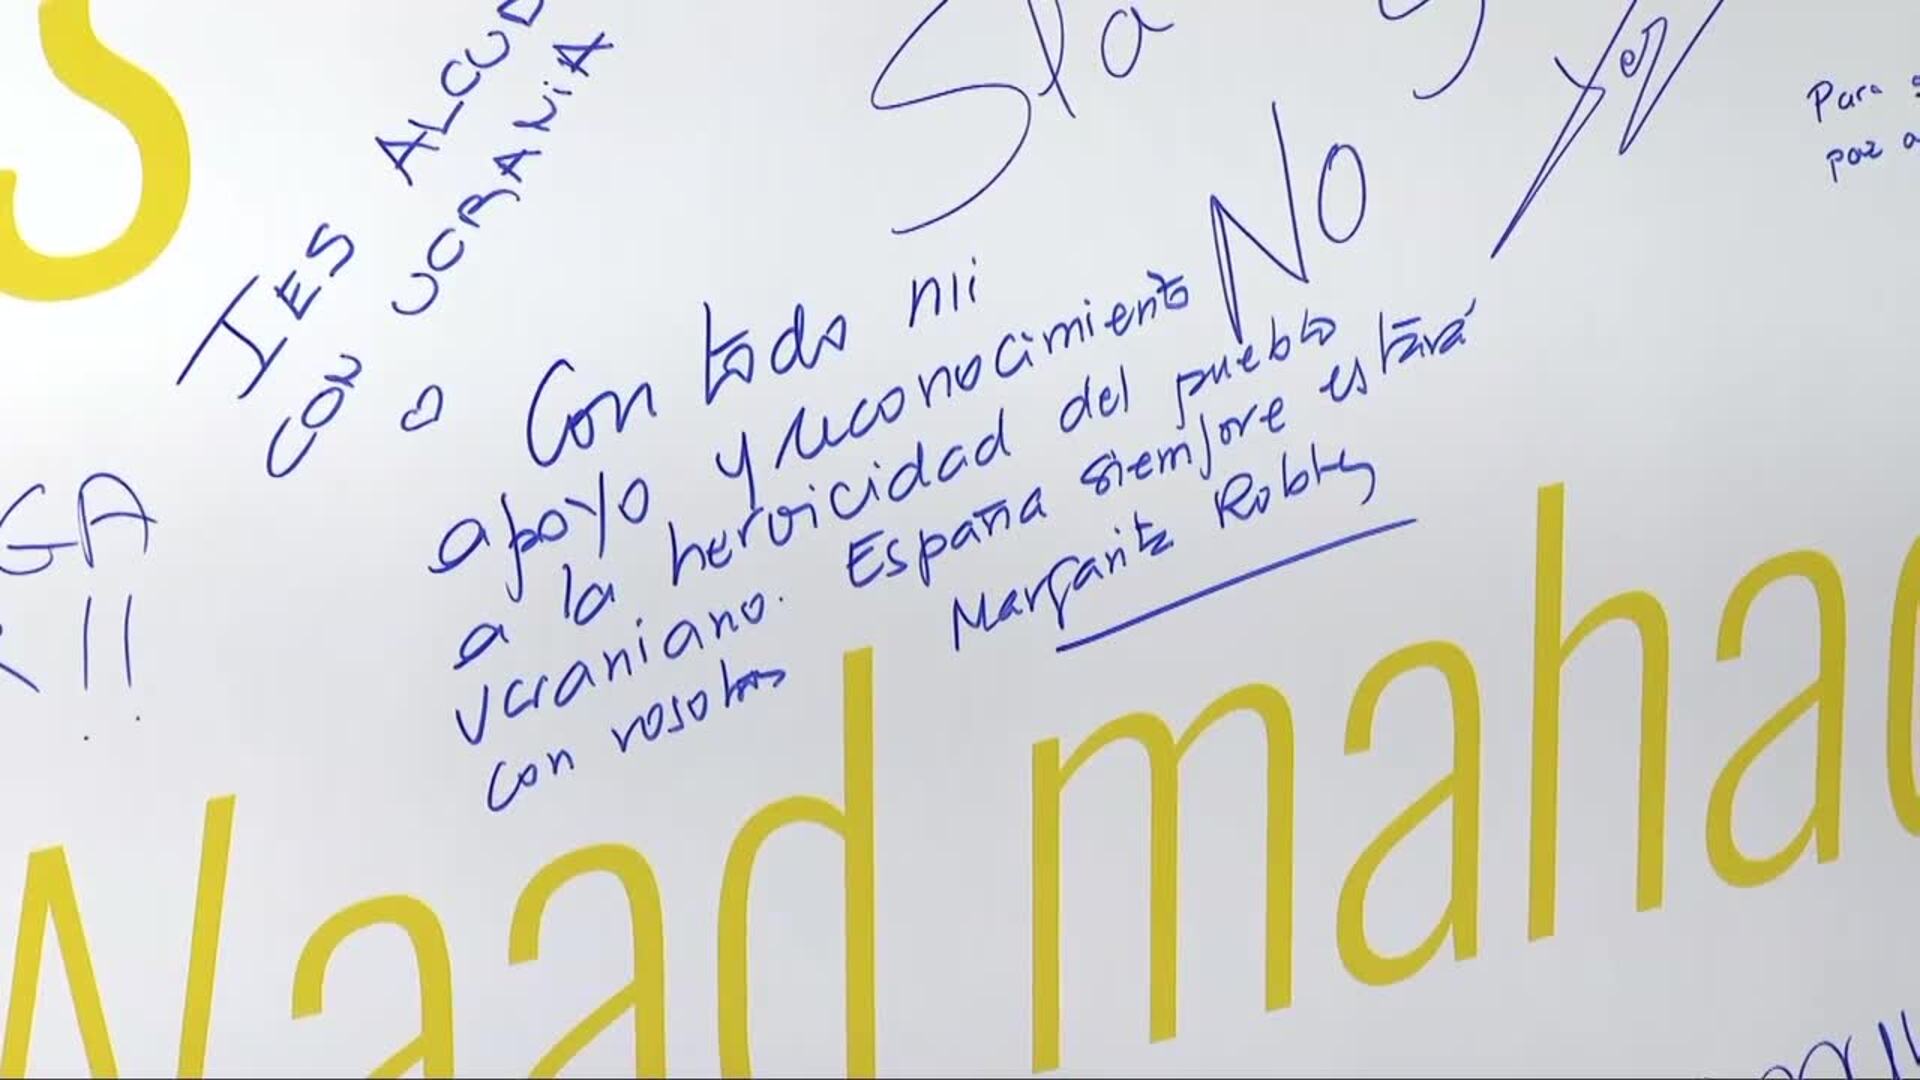 IES ALCUD
CON UCRANIA
Sla
NO
Para
paz a
Con todo mi
apoyo y reconocimiento
a la heroicidad del pueblo
ucraniano. España siempre estará
con vosotros
Margarita Robles
GA
!!
Waad mahad